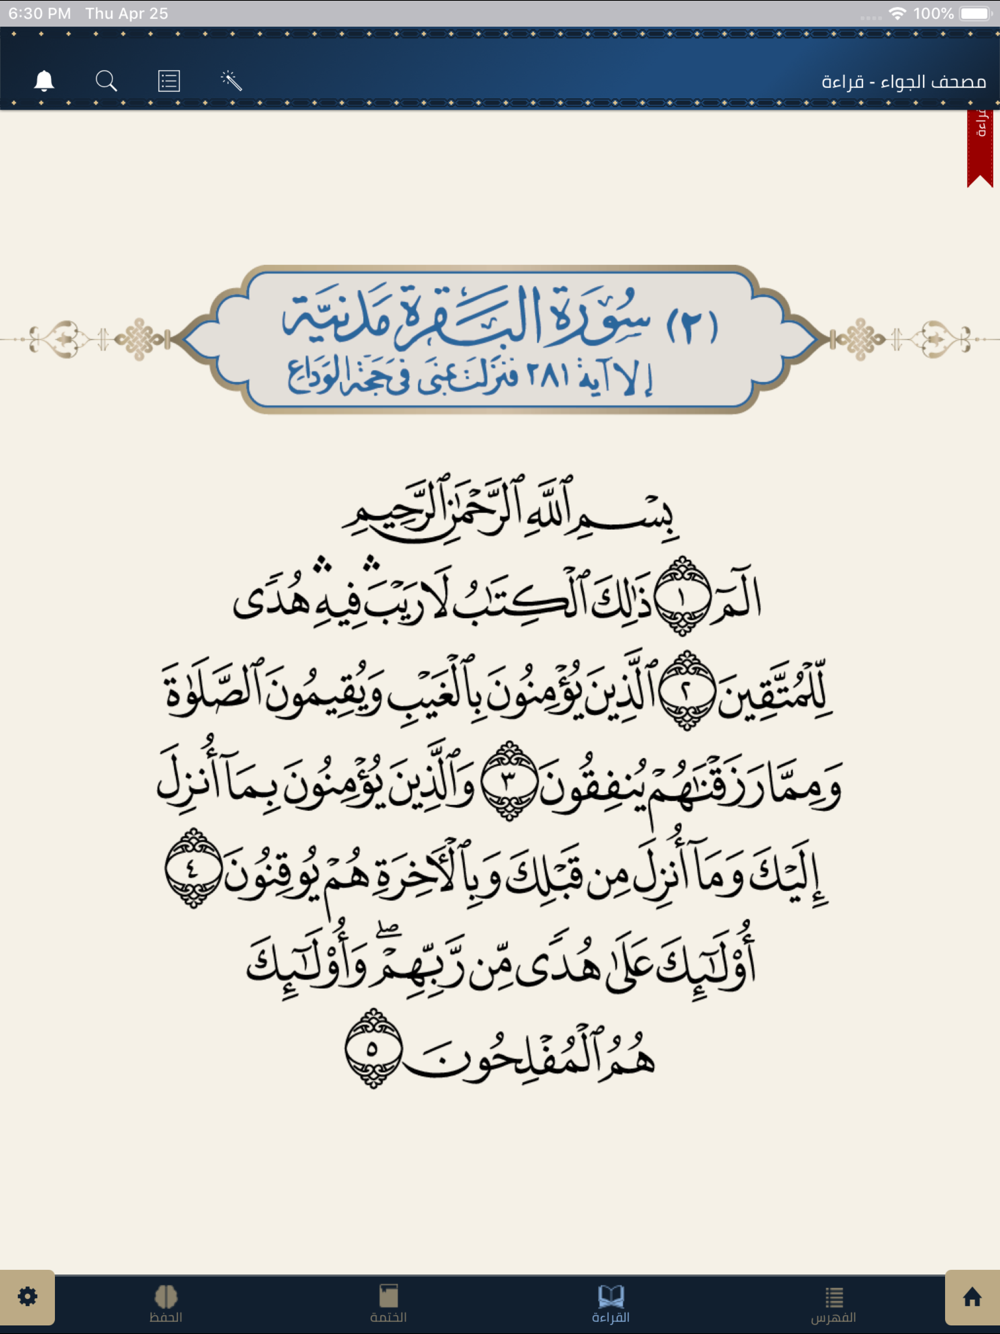 6:30 PM Thu Apr 25 100%
مصحف الجواء - قراءة
(٢) سُورَة البَقَرة مَدنيَّة
إلا آية ٢٨١ فنزلت بمنى في حجة الوداع
بِسْمِ ٱللَّهِ ٱلرَّحْمَٰنِ ٱلرَّحِيمِ
الٓمٓ ١ ذَٰلِكَ ٱلْكِتَٰبُ لَا رَيْبَ ۛ فِيهِ ۛ هُدًى
لِّلْمُتَّقِينَ ٢ ٱلَّذِينَ يُؤْمِنُونَ بِٱلْغَيْبِ وَيُقِيمُونَ ٱلصَّلَوٰةَ
وَمِمَّا رَزَقْنَٰهُمْ يُنفِقُونَ ٣ وَٱلَّذِينَ يُؤْمِنُونَ بِمَآ أُنزِلَ
إِلَيْكَ وَمَآ أُنزِلَ مِن قَبْلِكَ وَبِٱلْأَخِرَةِ هُمْ يُوقِنُونَ ٤
أُو۟لَٰٓئِكَ عَلَىٰ هُدًى مِّن رَّبِّهِمْ ۖ وَأُو۟لَٰٓئِكَ
هُمُ ٱلْمُفْلِحُونَ ٥
الفهرس القراءة الختمة الحفظ